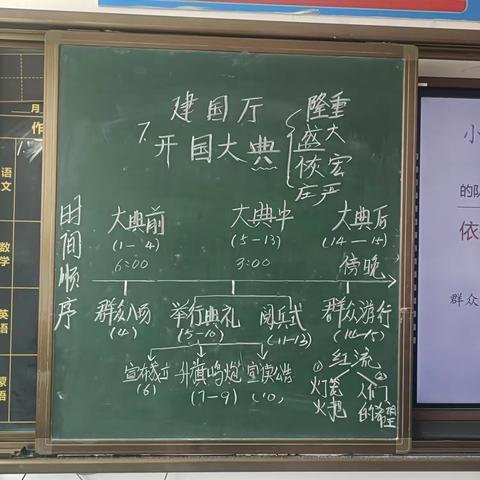 建国厅
7.开国大典
隆重
盛大
恢宏
庄严
时间顺序
大典前
大典中
大典后
(1-4)
(5-13)
(14-15)
6:00
3:00
傍晚
群众入场
举行典礼
阅兵式
群众游行
(4)
(5-10)
(11-13)
(14-15)
宣布成立
升旗鸣炮
宣读公告
(6)
(7-9)
(10)
红流
①
灯笼
火把
②
人们
的希望
月
作
语文
数学
英语
小
的队
依
群众